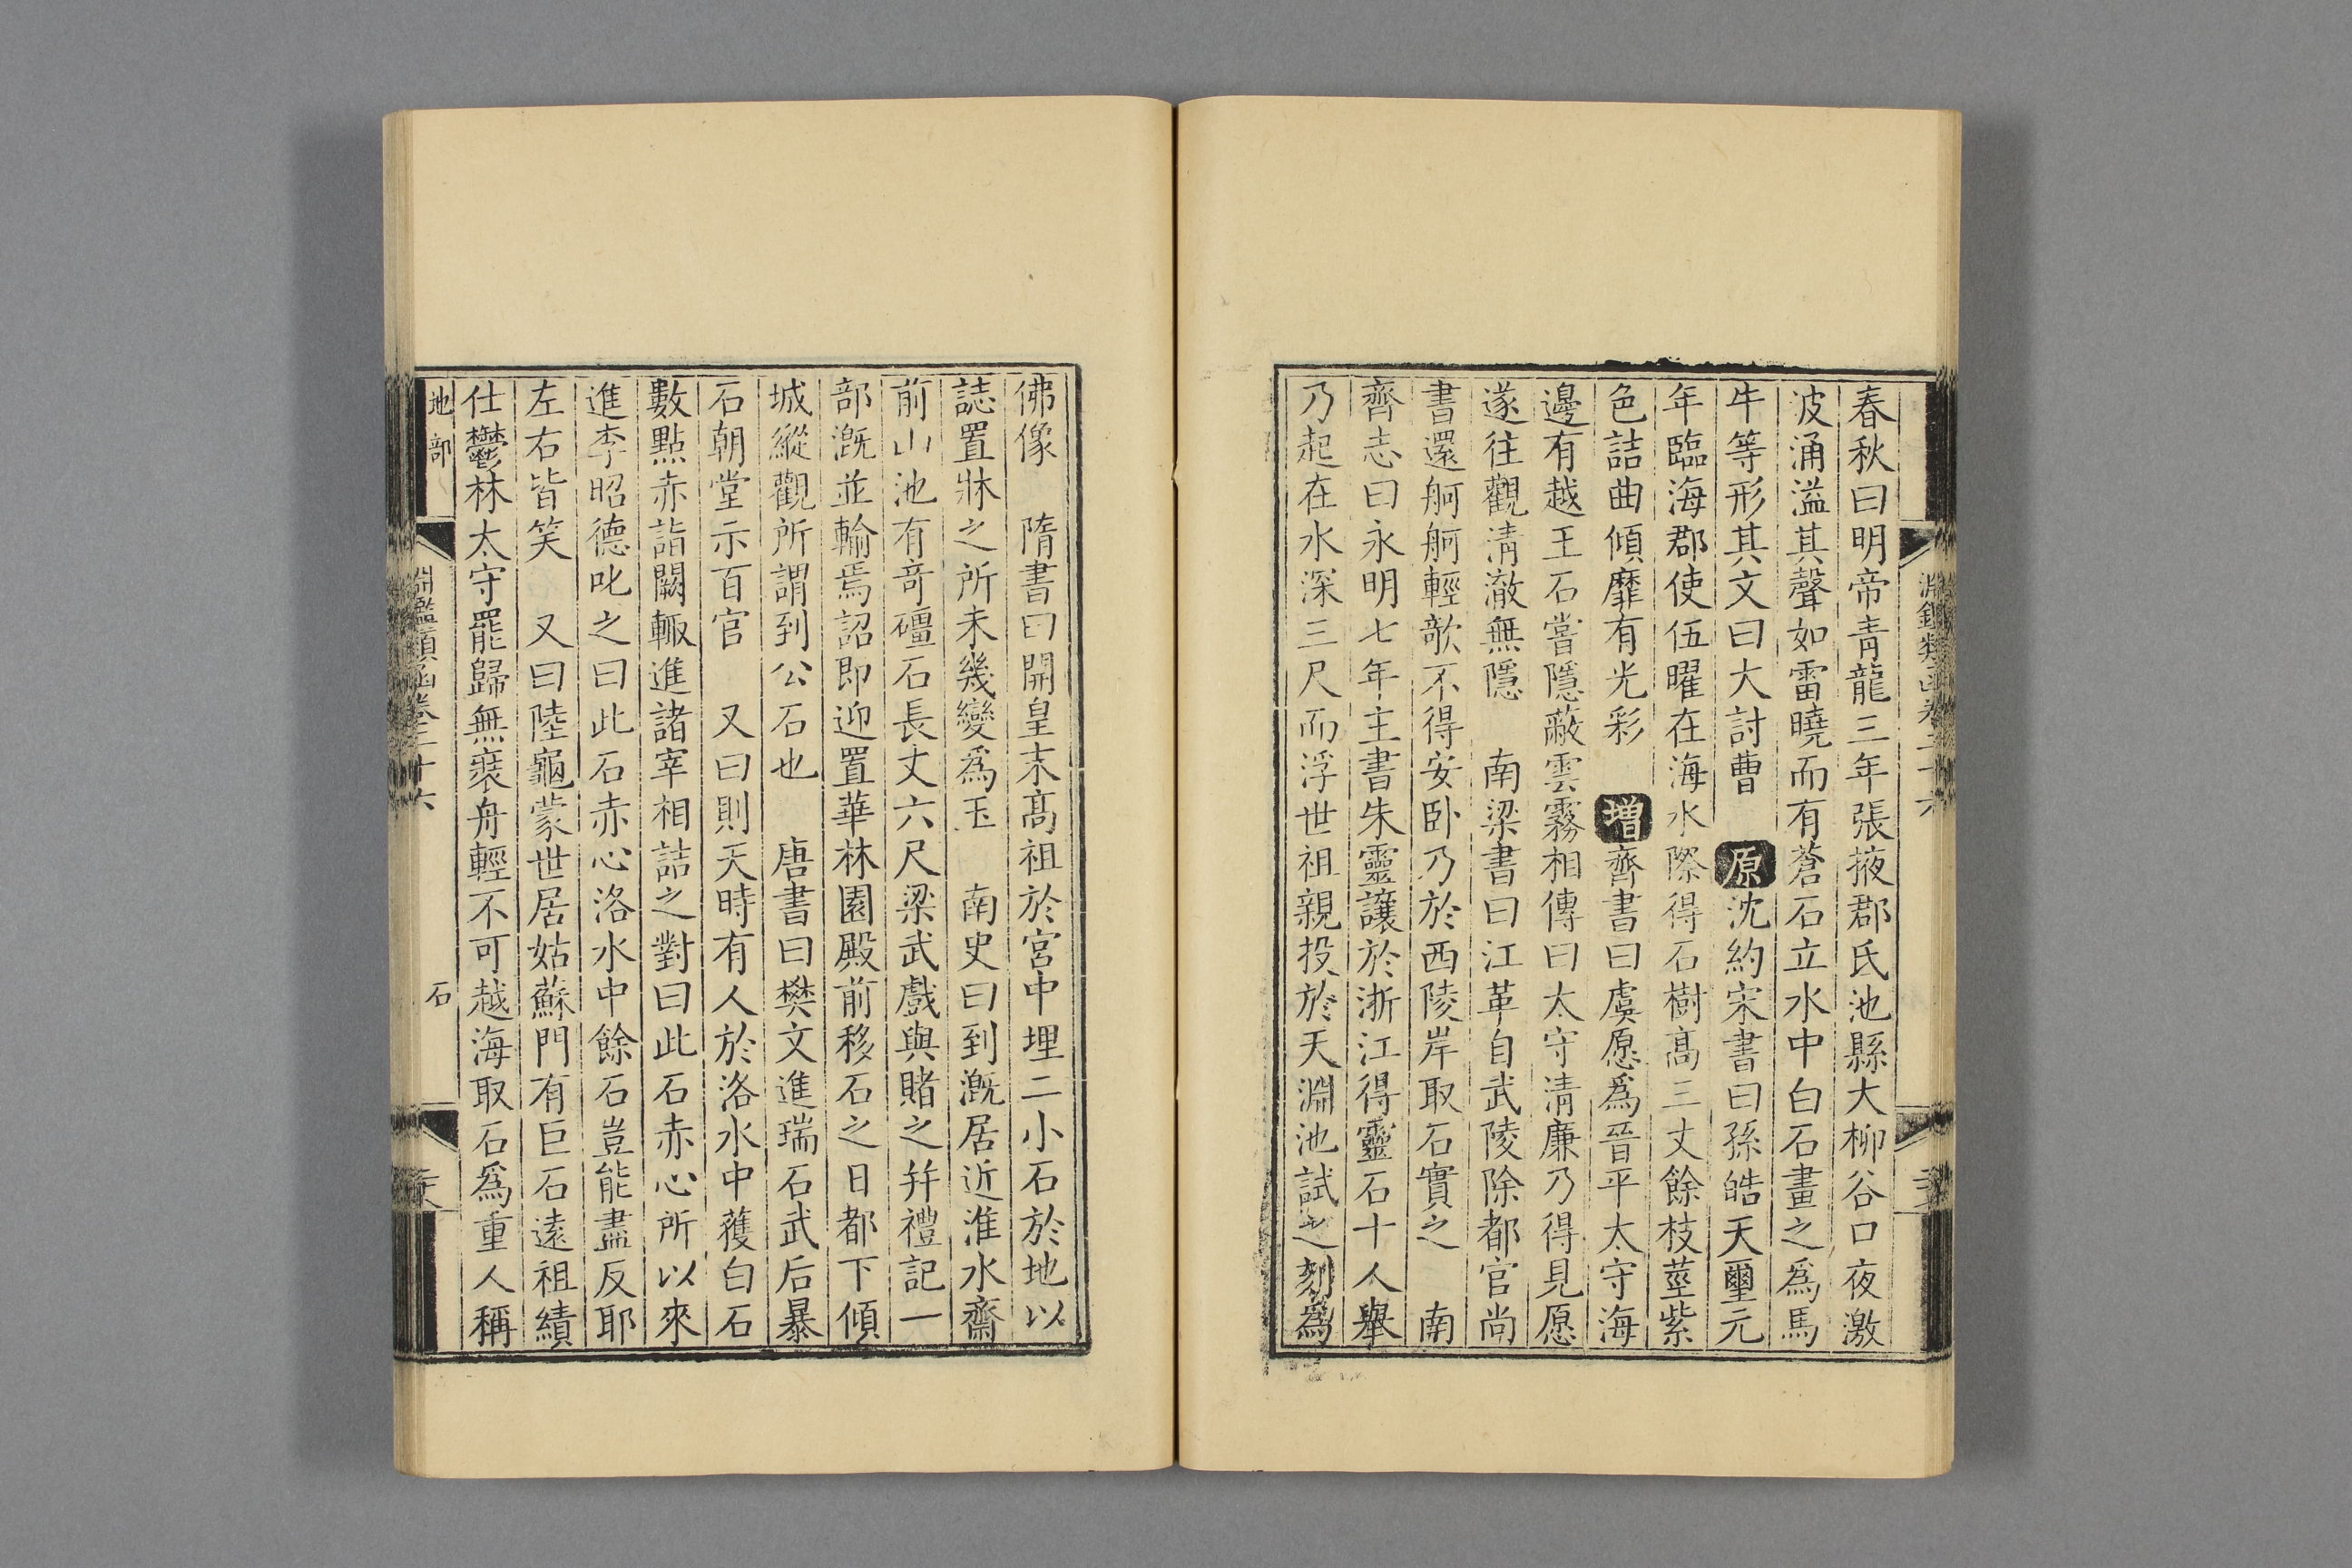 春秋曰明帝青龍三年張掖郡氐池縣大柳谷口夜激
波涌溢其聲如雷曉而有蒼石立水中白石畫之爲馬
牛等形其文曰大討曹　原沈約宋書曰孫皓天璽元
年臨海郡使伍曜在海水際得石樹高三丈餘枝莖紫
色詰曲傾靡有光彩　增齊書曰虞愿爲晉平太守海
邊有越王石嘗隱蔽雲霧相傳曰太守清廉乃得見愿
遂往觀清澈無隱　南梁書曰江革自武陵除都官尚
書還舸舸輕欹不得安卧乃於西陵岸取石實之　南
齊志曰永明七年主書朱靈讓於浙江得靈石十人舉
乃起在水深三尺而浮世祖親投於天淵池試之刻爲
佛像　隋書曰開皇末高祖於宮中埋二小石於地以
誌置牀之所未幾變爲玉　南史曰到溉居近淮水齋
前山池有奇礓石長丈六尺梁武戲與賭之幷禮記一
部溉並輸焉詔即迎置華林園殿前移石之日都下傾
城縱觀所謂到公石也　唐書曰樊文進瑞石武后暴
石朝堂示百官　又曰則天時有人於洛水中獲白石
數點赤詣闕輒進諸宰相詰之對曰此石赤心所以來
進李昭德叱之曰此石赤心洛水中餘石豈能盡反耶
左右皆笑　又曰陸龜蒙世居姑蘇門有巨石遠祖績
仕鬱林太守罷歸無裝舟輕不可越海取石爲重人稱
地部　淵鑑類函卷二十六　石